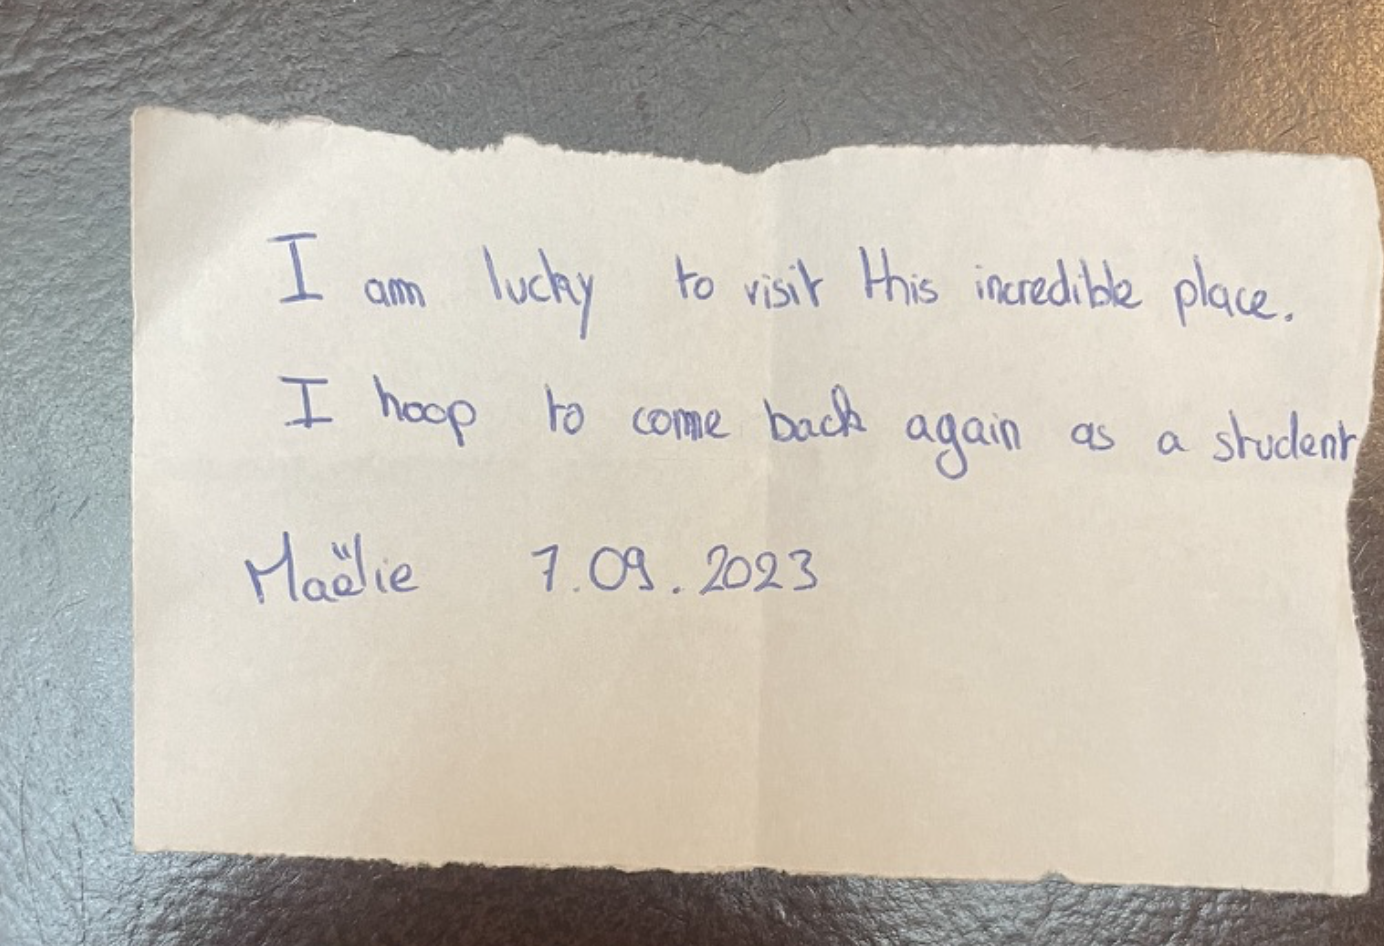 I am lucky to visit this incredible place.
I hoop to come back again as a student
Maëlie 7.09.2023